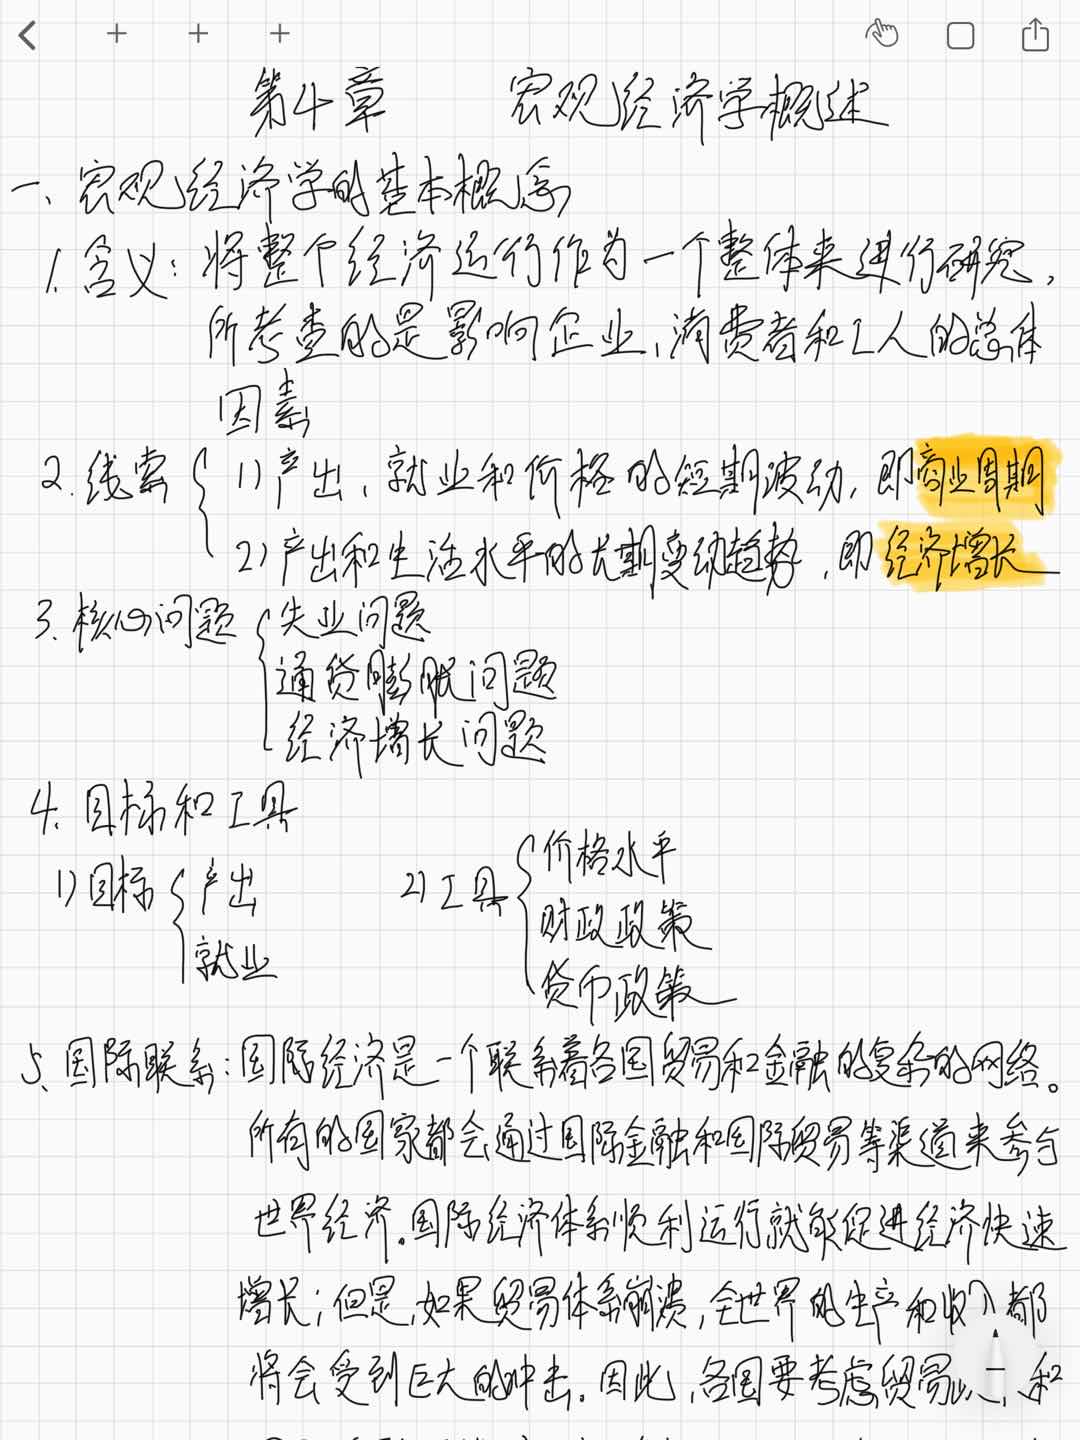 第4章 宏观经济学概述
一、宏观经济学的基本概念
1.含义：将整个经济运行作为一个整体来进行研究，
所考查的是影响企业、消费者和工人的总体
因素
2.线索 1)产出、就业和价格的短期波动，即商业周期
2)产出和生活水平的长期变动趋势，即经济增长
3.核心问题 失业问题
通货膨胀问题
经济增长问题
4.目标和工具
1)目标 产出
就业
2)工具 价格水平
财政政策
货币政策
5.国际联系：国际经济是一个联系着各国贸易和金融的复杂的网络。
所有的国家都会通过国际金融和国际贸易等渠道来参与
世界经济。国际经济体系顺利运行就能促进经济快速
增长；但是，如果贸易体系崩溃，全世界的生产和收入都
将会受到巨大的冲击。因此，各国要考虑贸易 和